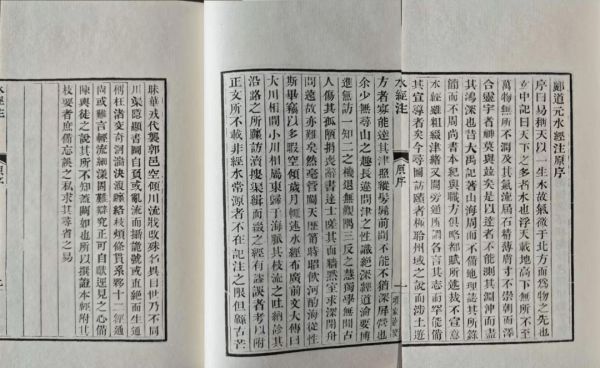 酈道元水經注原序
序曰易稱天以一生水故氣微于北方而爲物之先也
玄中記曰天下之多者水也浮天載地高下無所不至
萬物無所不潤及其氣流屆石精薄膚寸不崇朝而澤
合靈宇者神莫與並矣是以達者不能測其淵沖而盡
其鴻深也昔大禹記著山海周而不備地理誌其所錄
簡而不周尚書本紀與職方俱略都賦所述裁不宣意
水經雖粗綴津緒又闕旁通所謂各言其志而罕能備
其宣導者矣今尋圖訪賾者極聆州域之說而涉土遊
水經注
原序
一
方者寡能達其津照縱髣髴前聞不能不猶深屛營也
余少無尋山之趣長違問津之性識絕深經道淪要博
進無訪一知二之機退無觀隅三反之慧獨學無聞古
人傷其孤陋捐喪辭書達士嗟其面牆默室求深閉舟
問遠故亦難矣然毫管闚天歷筩時昭飲河酌海從性
斯畢竊以多暇空傾歲月輒述水經布廣前文大傳曰
大川相間小川相屬東歸于海脈其枝流之吐納診其
沿路之所躔訪瀆搜渠緝而綴之經有謬誤者考以附
正文所不載非經水常源者不在記注之限但緜古芒
昧華戎代襲郭邑空傾川流戕改殊名異目世乃不同
川渠隱顯書圖自負或亂流而攝詭號或直絕而生通
稱枉渚交奇洄湍決澓躔絡枝煩條貫系夥十二經通
尚或難言輕流細漾固難辯究正可自獻逕見之心備
陳輿徒之說其所不知蓋闕如也所以撰證本經附其
枝要者庶備忘誤之私求其尋省之易
水經注
原序